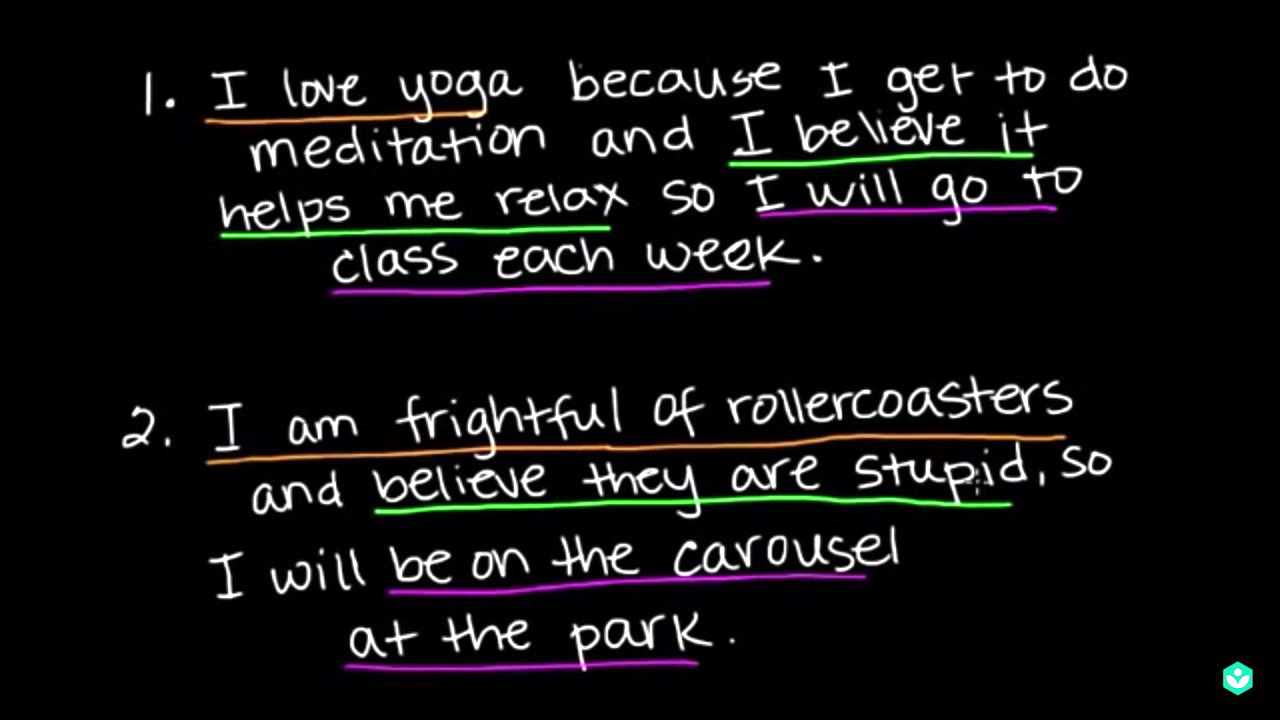 1. I love yoga because I get to do
meditation and I believe it
helps me relax so I will go to
class each week.
2. I am frightful of rollercoasters
and believe they are stupid, so
I will be on the carousel
at the park.